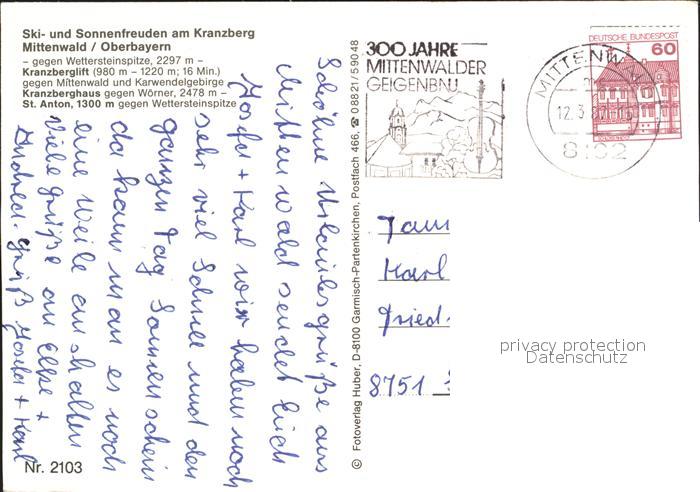 Ski- und Sonnenfreuden am Kranzberg
Mittenwald / Oberbayern
– gegen Wettersteinspitze, 2297 m –
Kranzberglift (980 m – 1220 m; 16 Min.)
gegen Mittenwald und Karwendelgebirge
Kranzberghaus gegen Wörner, 2478 m –
St. Anton, 1300 m gegen Wettersteinspitze
Schöne Urlaubsgrüße aus
Mittenwald sendet Euch
+ Karl wir haben noch
sehr viel Schnee und den
ganzen Tag Sonnenschein
da kann man es noch
eine Weile aushalten
viele Grüße an Else +
Andrea. Gruß + Karl
Nr. 2103
© Fotoverlag Huber, D-8100 Garmisch-Partenkirchen, Postfach 466, ☎ 08821/59048
300 JAHRE
MITTENWALDER
GEIGENBAU
MITTENW
12.3.87
8102
DEUTSCHE BUNDESPOST
60
Fam
Karl
Fried.
8751
privacy protection
Datenschutz